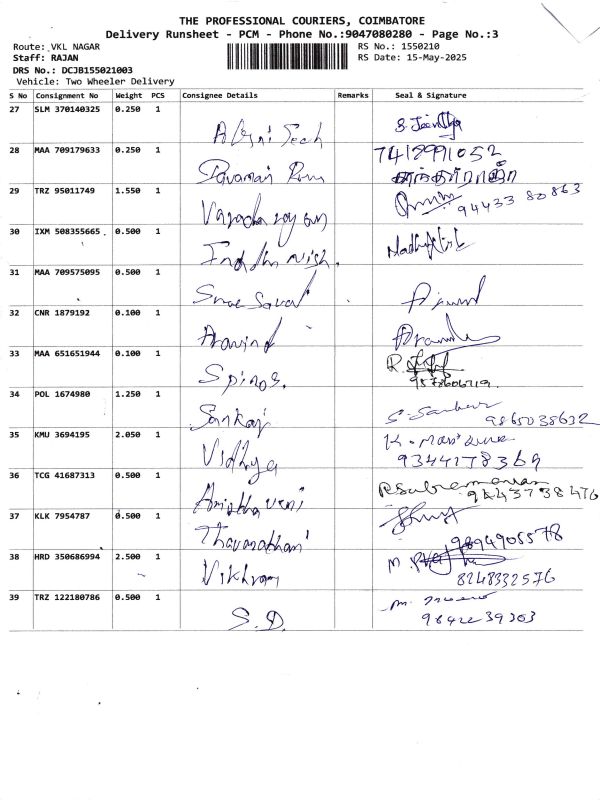 THE PROFESSIONAL COURIERS, COIMBATORE
Delivery Runsheet - PCM - Phone No.:9047080280 - Page No.:3
Route: VKL NAGAR
RS No.: 1550210
Staff: RAJAN
RS Date: 15-May-2025
DRS No.: DCJB155021003
Vehicle: Two Wheeler Delivery
S No Consignment No Weight PCS Consignee Details Remarks Seal & Signature
27 SLM 370140325 0.250 1
28 MAA 709179633 0.250 1 7418991052
29 TRZ 95011749 1.550 1 94433 80863
30 IXM 508355665 0.500 1
31 MAA 709575095 0.500 1
32 CNR 1879192 0.100 1 Aravind
33 MAA 651651944 0.100 1 Spinos.
34 POL 1674980 1.250 1 Sankaj 9865038632
35 KMU 3694195 2.050 1 Vidhya 9344178369
36 TCG 41687313 0.500 1
37 KLK 7954787 0.500 1 9894905578
38 HRD 350686994 2.500 1 Vikhram 8248332576
39 TRZ 122180786 0.500 1 S.D.